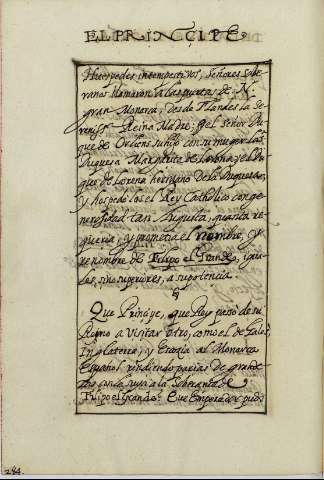 EL PRINCIPE
Huespedes intempestivos, Señores sobe
ranos llamaron a las puertas de N.
gran Monarca, desde Flandes la Se
reniss. Reina Madre; y el Señor Du
que de Orliens su hijo con su muger la
Duquesa Margarita de Lorena, y el Du
que de Lorena hermano de la Duquessa
y hospedolos el Rey Catholico con ge
nerosidad tan Augusta, quanta re
queria, y prometia el nombre, y
renombre de Filipo el Grande, igua
les, sino superiores, a su potencia.
Que Principe, que Rey passo de su
Reino a visitar otro, como el de Gales
Inglaterra, y Escocia al Monarca
Español rindiendo parias de grande
za suya a la Soberania de
Filipo el Grande? Que Emperador pudo
284.